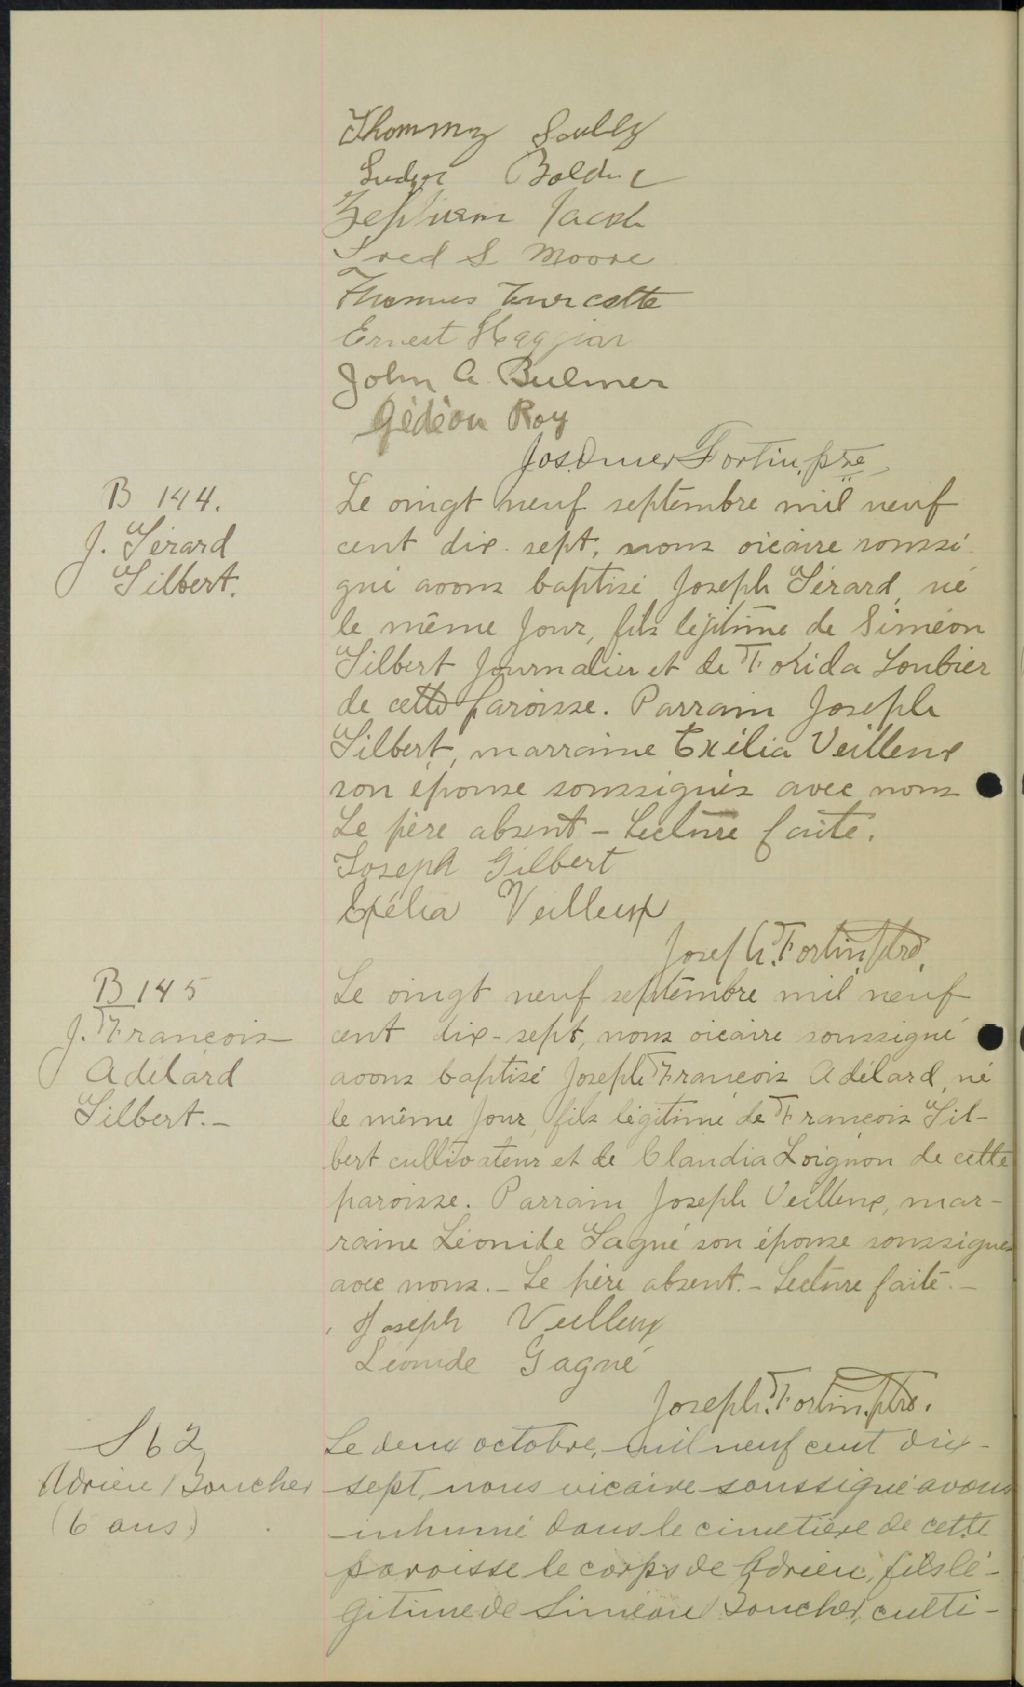 Thommy Scully
Ludger Bolduc
Zephirin Jacob
Fred S Moore
Thomas Turcotte
Ernest
John A Bulmer
Gédéon Roy
Jos. Omer Fortin, ptre
B 144.
J. Gérard
Gilbert.
Le vingt neuf septembre mil neuf
cent dix-sept, nous vicaire soussi-
gné avons baptisé Joseph Gérard, né
le même jour, fils légitime de Siméon
Gilbert journalier et de Florida Loubier
de cette paroisse. Parrain Joseph
Gilbert, marraine Exélia Veilleux
son épouse soussignés avec nous
Le père absent – Lecture faite.
Joseph Gilbert
Exélia Veilleux
Joseph Fortin ptre.
B 145
J. François
Adélard
Gilbert. –
Le vingt neuf septembre mil neuf
cent dix-sept, nous vicaire soussigné
avons baptisé Joseph François Adélard, né
le même jour, fils légitime de François Gil-
bert cultivateur et de Claudia Loignon de cette
paroisse. Parrain Joseph Veilleux, mar-
raine Léonide Gagné son épouse soussignés
avec nous. – Le père absent. – Lecture faite. –
Joseph Veilleux
Léonide Gagné
Joseph Fortin, ptre.
S 62
Adrien Boucher
(6 ans)
Le deux octobre, mil neuf cent dix-
sept, nous vicaire soussigné avons
inhumé dans le cimetière de cette
paroisse le corps de Adrien, fils lé-
gitime de Siméon Boucher, culti-